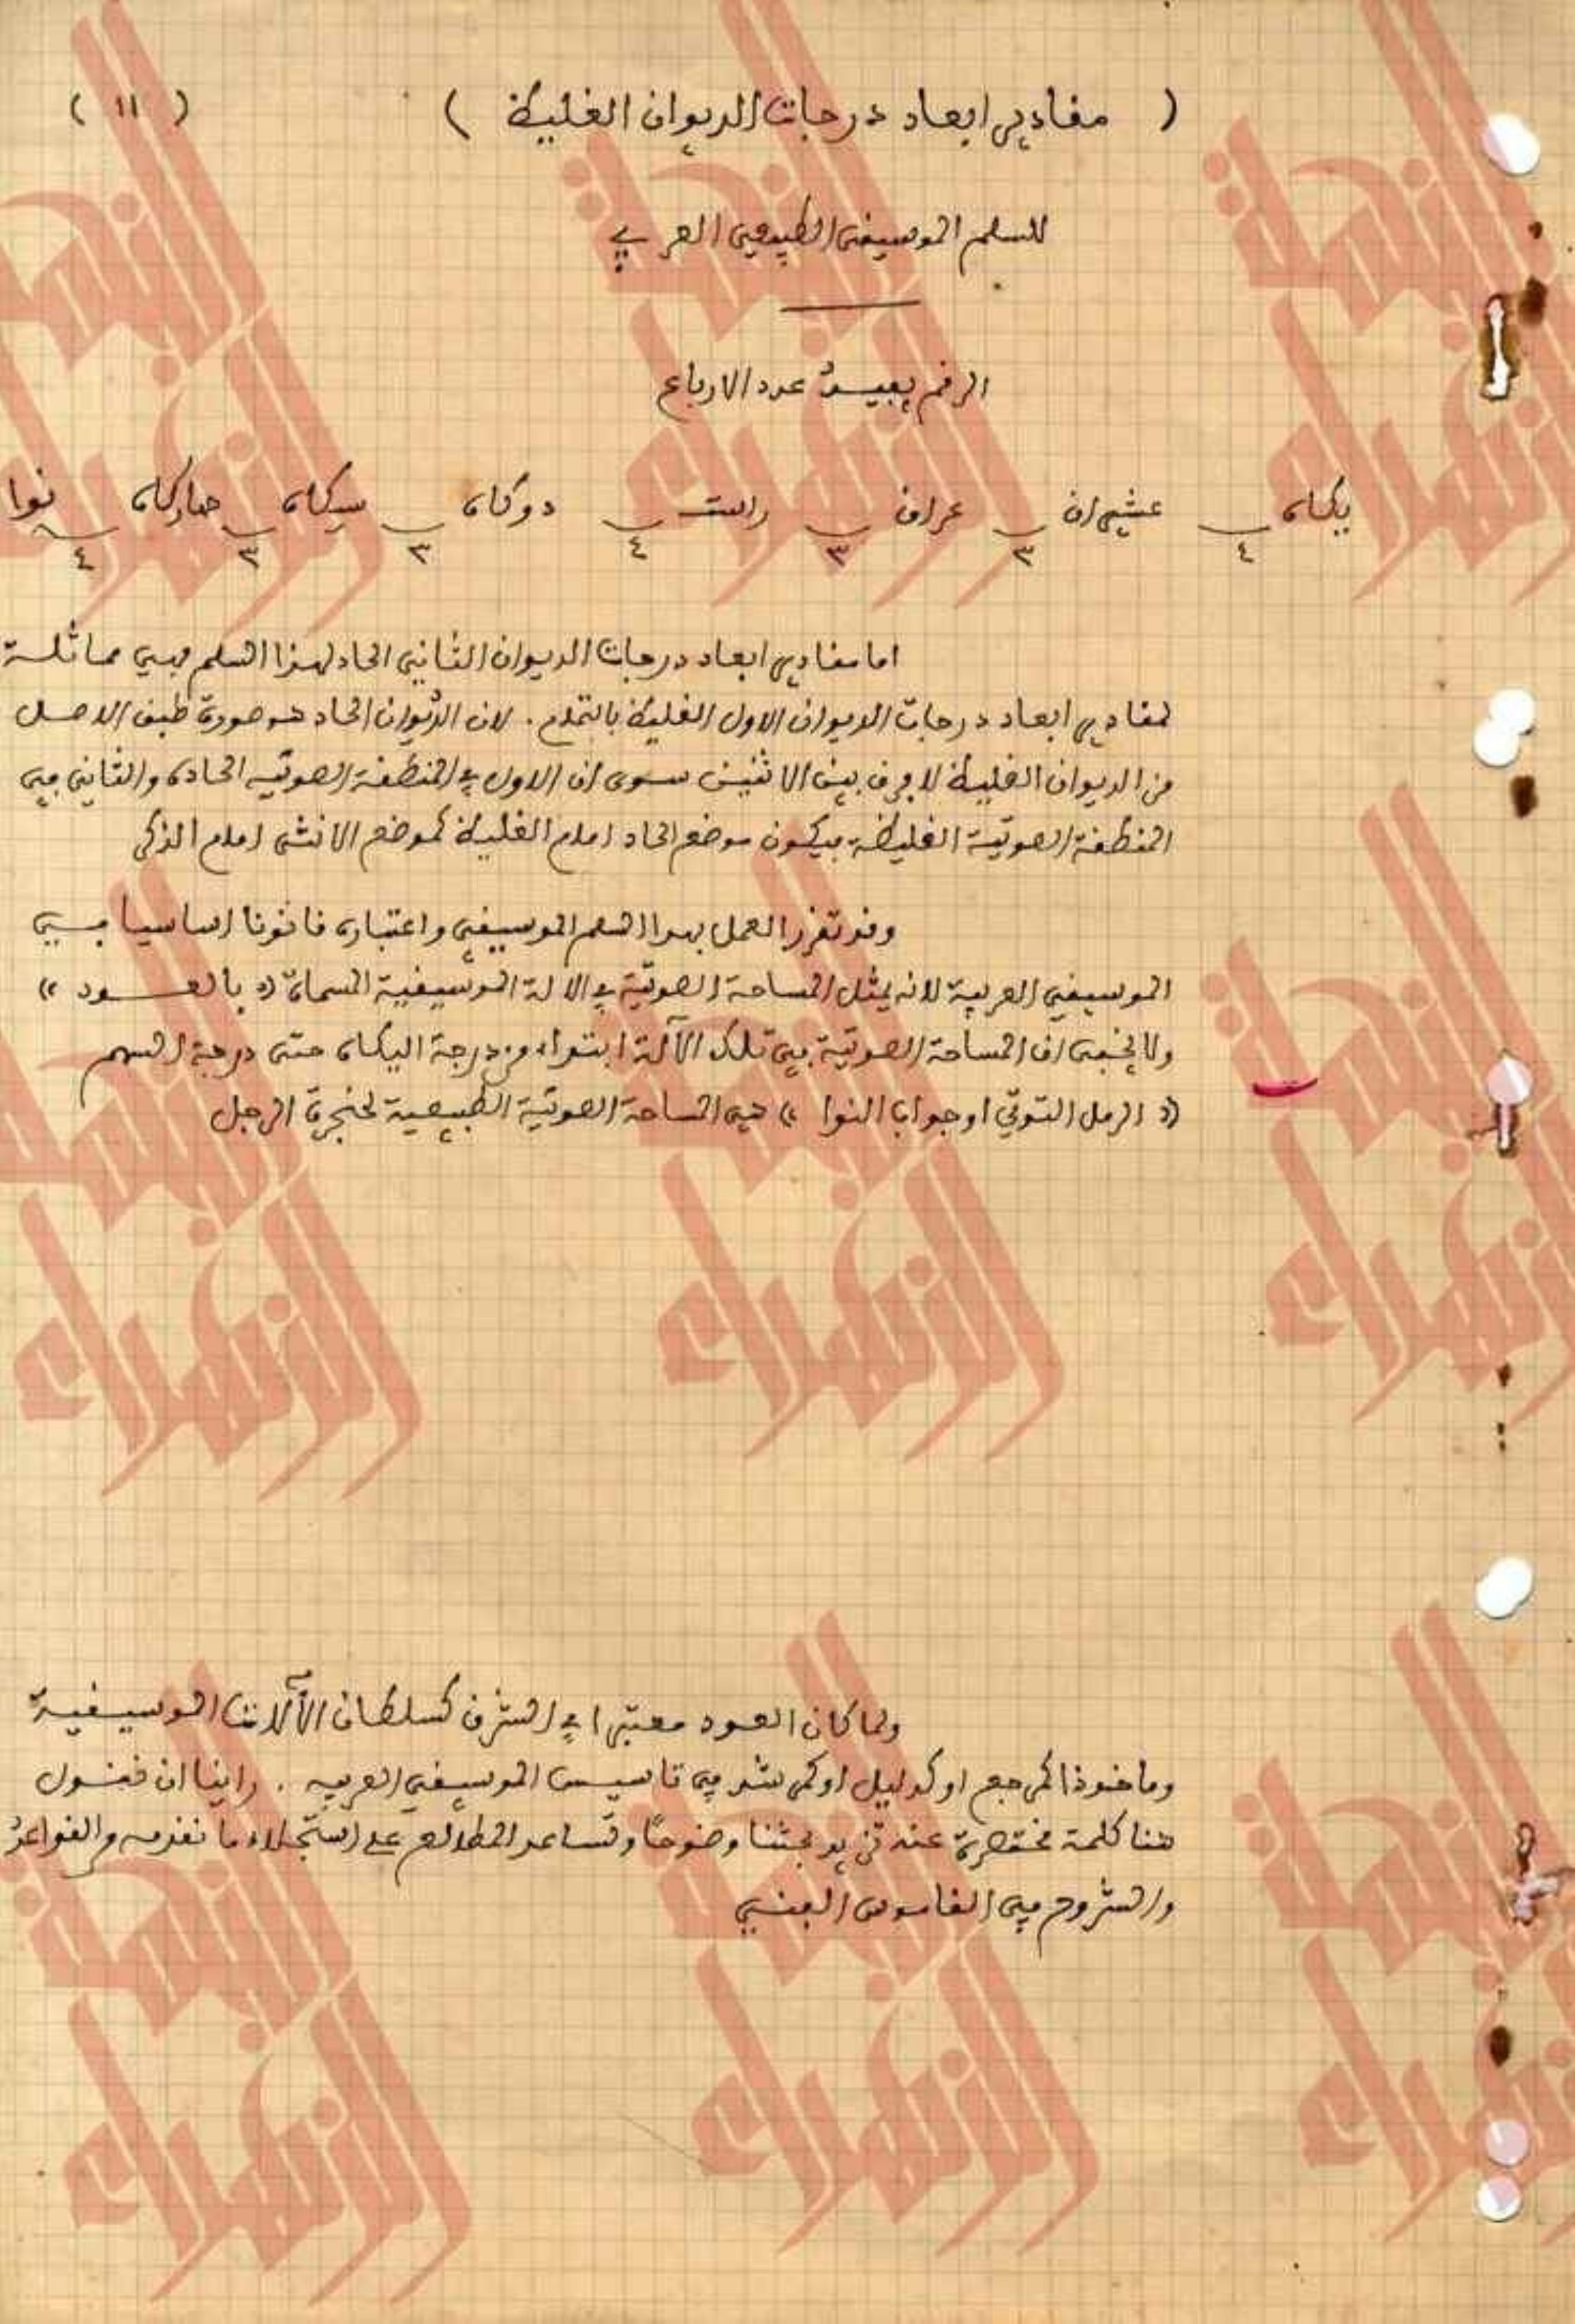 ( مقادير ابعاد درجات الديوان الغليظ ) ( ١١ )
للسلم الموسيقى الطبيعي العربي
الرقم يفيد عدد الارباع
يكاه ٤ عشيران ٣ عراق ٣ راست ٤ دوكاه ٣ سيكاه ٣ جهاركاه ٤ نوا
اما مقادير ابعاد درجات الديوان الثاني الحاد لهذا السلم فهي مماثلة
لمقادير ابعاد درجات الديوان الاول الغليظ بالتمام . لان الديوان الحاد هو صورة طبق الاصل
من الديوان الغليظ لا فرق بين الاثنين سوى ان الاول في المنطقة الصوتيه الحاده والثاني في
المنطقة الصوتية الغليظة فيكون موضع الحاد امام الغليظ كموضع الانثى امام الذكر
وقد تقرر العمل بهذا السلم الموسيقي واعتباره قانونا اساسيا في
الموسيقي العربية لانه يمثل المساحة الصوتية في الالة الموسيقية المسماة (( بالعود ))
ولا يخفى ان المساحة الصوتية في تلك الآلة ابتداء من درجة اليكاه حتى درجة السهم
(( الرمل التوتي او جواب النوا )) هي المساحة الصوتية الطبيعية لحنجرة الرجل
ولما كان العود معتبرا في الشرق كسلطان الآلات الموسيقية
وماخوذا كمرجع او كدليل او كمرشد في تاسيس الموسيقي العربيه . راينا ان نقول
هنا كلمة مختصرة عنه تزيد بحثنا وضوحًا وتساعد المطالع على استجلاء ما نقدمه من القواعد
والشروح في القاموس الفني
النجمة الزهراء